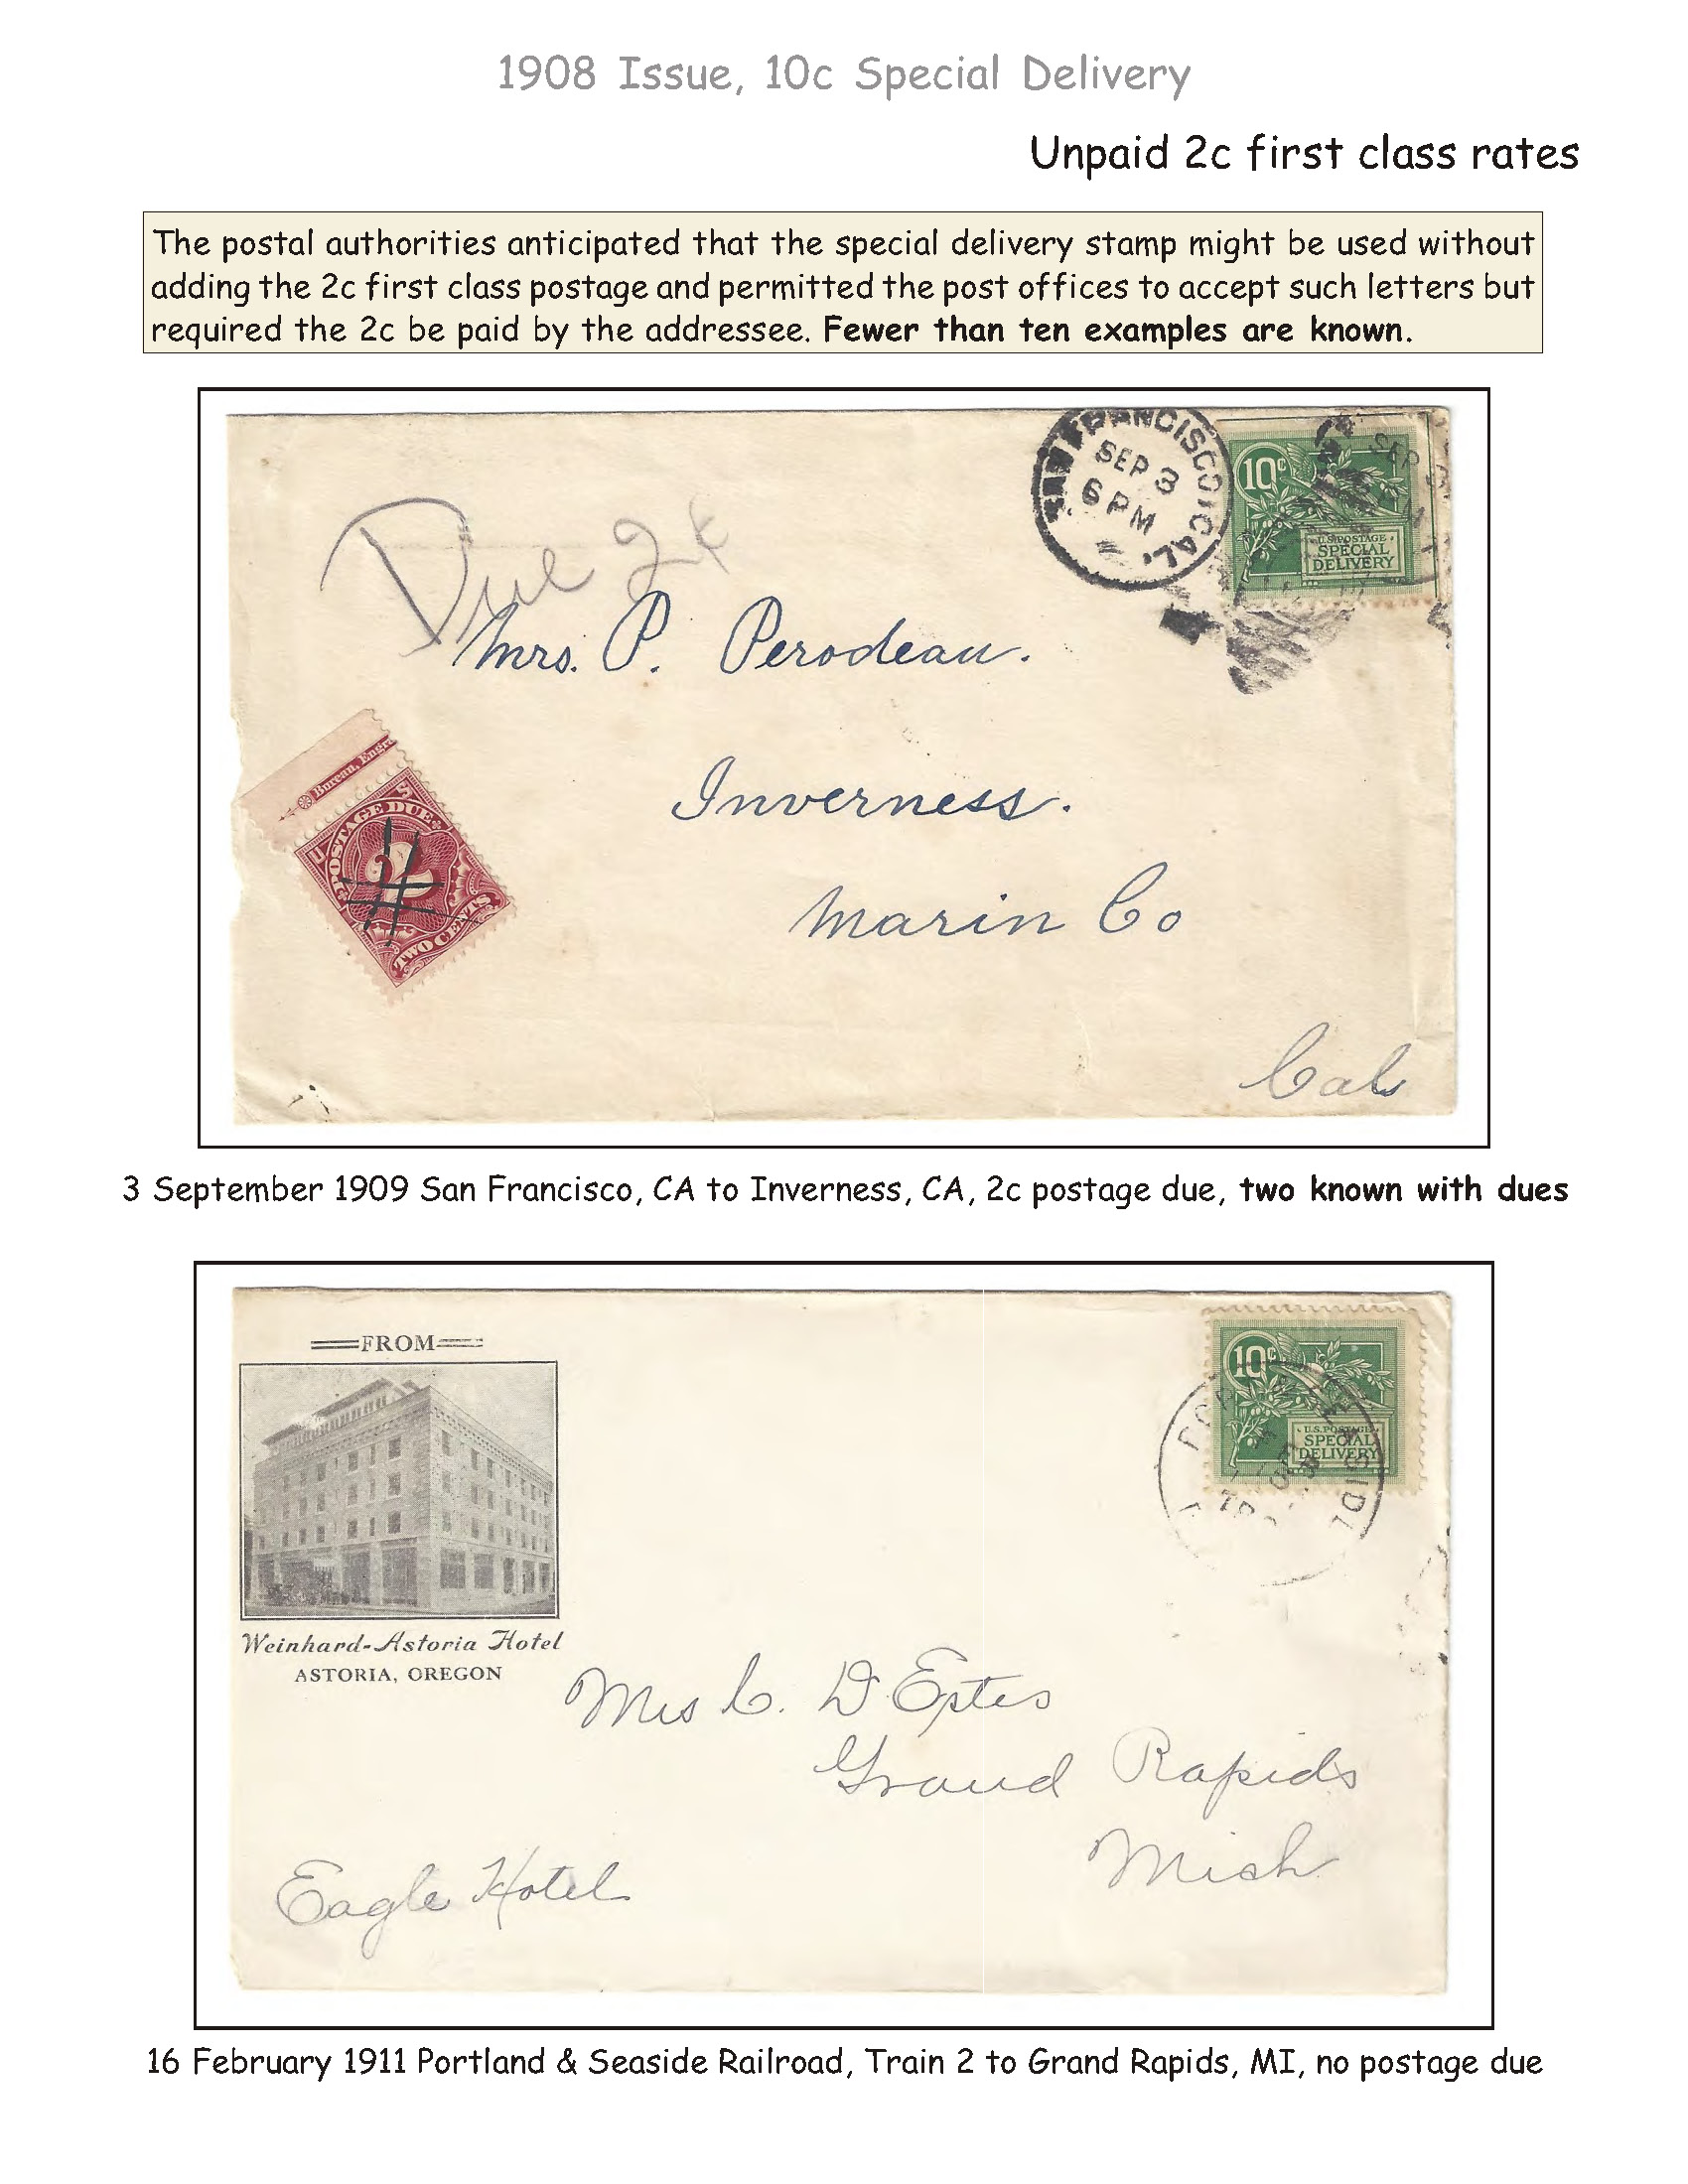 1908 Issue, 10c Special Delivery
Unpaid 2c first class rates
The postal authorities anticipated that the special delivery stamp might be used without
adding the 2c first class postage and permitted the post offices to accept such letters but
required the 2c be paid by the addressee. Fewer than ten examples are known.
SAN FRANCISCO, CAL.
SEP 3
6 PM
10¢
U.S. POSTAGE
SPECIAL
DELIVERY
SEP
Due 2¢
Mrs. P. Perodeau.
Inverness.
Marin Co
Cal
Bureau, Engra
U S
POSTAGE DUE
2
TWO CENTS
3 September 1909 San Francisco, CA to Inverness, CA, 2c postage due, two known with dues
FROM
Weinhard-Astoria Hotel
ASTORIA, OREGON
10¢
U.S. POSTAGE
SPECIAL
DELIVERY
Mrs C. D Estes
Grand Rapids
Mich
Eagle Hotel
16 February 1911 Portland & Seaside Railroad, Train 2 to Grand Rapids, MI, no postage due